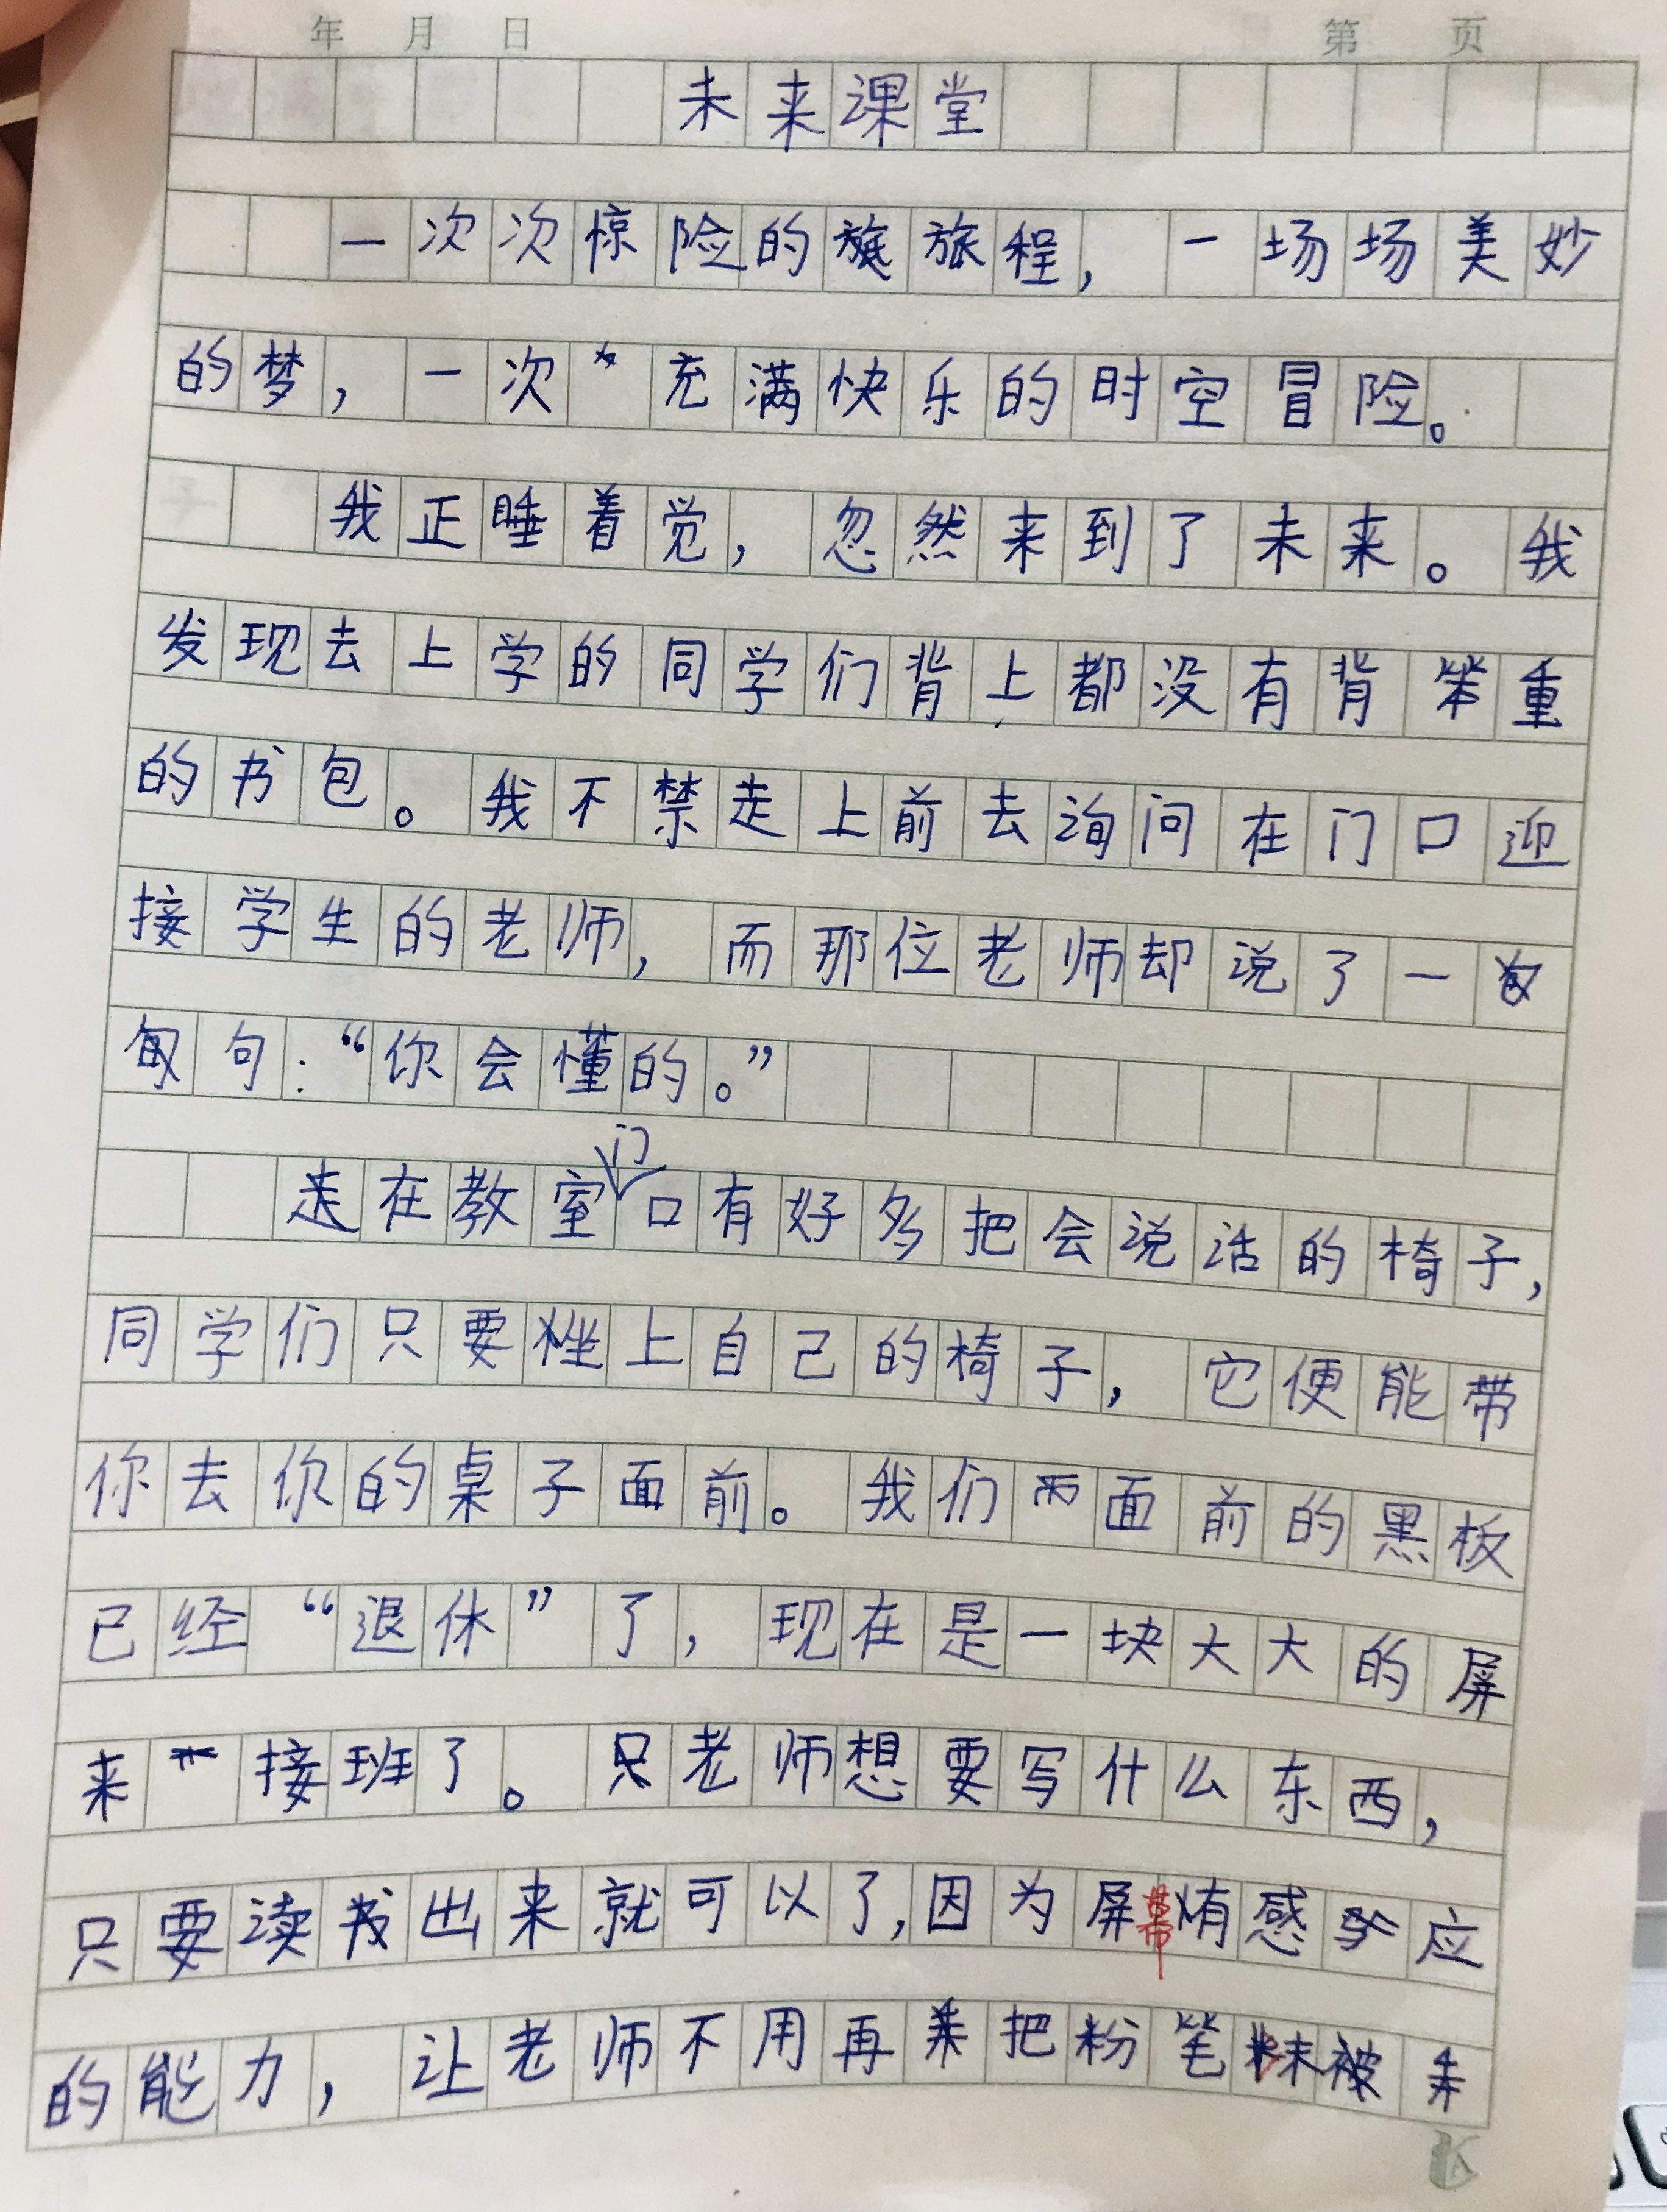 年 月 日 第 页
未来课堂
一次次惊险的旅程，一场场美妙
的梦，一次充满快乐的时空冒险。
我正睡着觉，忽然来到了未来。我
发现去上学的同学们背上都没有背笨重
的书包。我不禁走上前去询问在门口迎
接学生的老师，而那位老师却说了一
句：“你会懂的。”
走在教室门口有好多把会说话的椅子，
同学们只要坐上自己的椅子，它便能带
你去你的桌子面前。我们面前的黑板
已经“退休”了，现在是一块大大的屏
来接班了。只老师想要写什么东西，
只要读出来就可以了，因为屏幕有感应
的能力，让老师不用再把粉笔末被弄